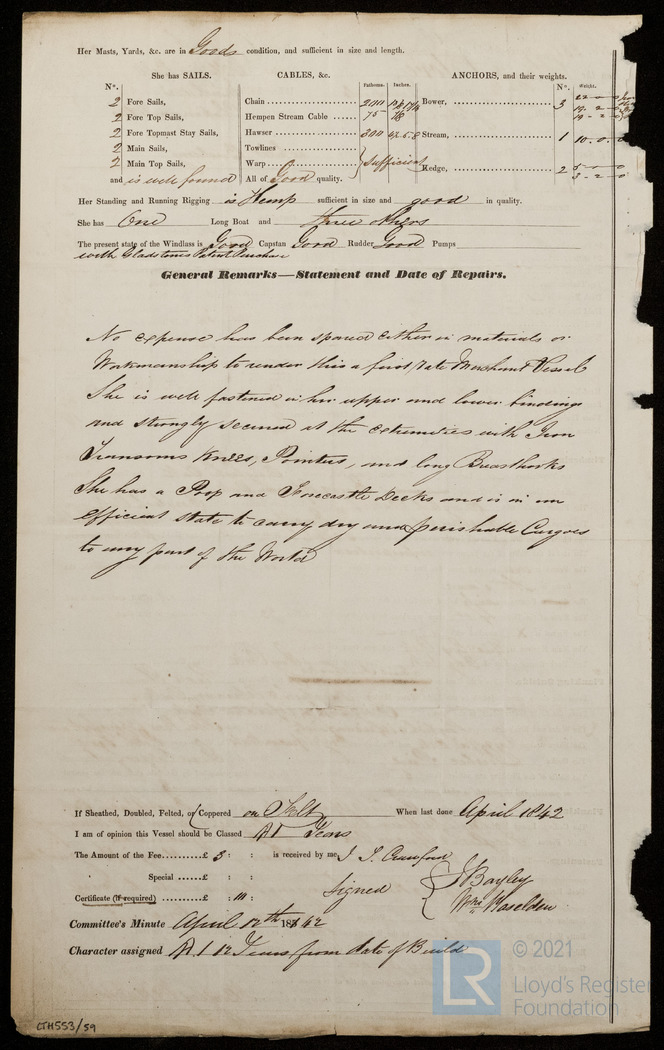 Her Masts, Yards, &c. are in Good condition, and sufficient in size and length.
She has SAILS.
CABLES, &c.
ANCHORS, and their weights.
N°.
Fathoms.
Inches.
N°.
Weight.
2 Fore Sails,
2 Fore Top Sails,
2 Fore Topmast Stay Sails,
2 Main Sails,
2 Main Top Sails,
and is well found
Chain 200
Hempen Stream Cable 75
Hawser 300
Towlines
Warp
All of Good quality.
Sufficient
Bower, 3
Stream, 1 10.0.0
Kedge, 2
3-2-0
Her Standing and Running Rigging is Hemp sufficient in size and good in quality.
She has One Long Boat and three others
The present state of the Windlass is Good Capstan Good Rudder Good Pumps
with Gladstones Patent Purchase
General Remarks—Statement and Date of Repairs.
No expense has been spared either in materials or
Workmanship to render this a first rate Merchant Vessel
She is well fastened in her upper and lower bindings
and strongly secured at the extremities with Iron
Transoms Knees, Pointers, and long Breasthooks
She has a Poop and Forecastle Decks and is in an
efficient state to carry dry and perishable Cargoes
to any part of the World
If Sheathed, Doubled, Felted, or Coppered on Felt When last done April 1842
I am of opinion this Vessel should be Classed A1 Years
The Amount of the Fee.........£ 5 : : is received by me, J S. Crawford
Special .......£ : :
Certificate (If required) .........£ : :
Signed
J Bayley
Wm Haselden
Committee's Minute April 12th 1842
Character assigned A.1 12 Years from date of Build
LTH553/59
LR
© 2021
Lloyd's Register
Foundation